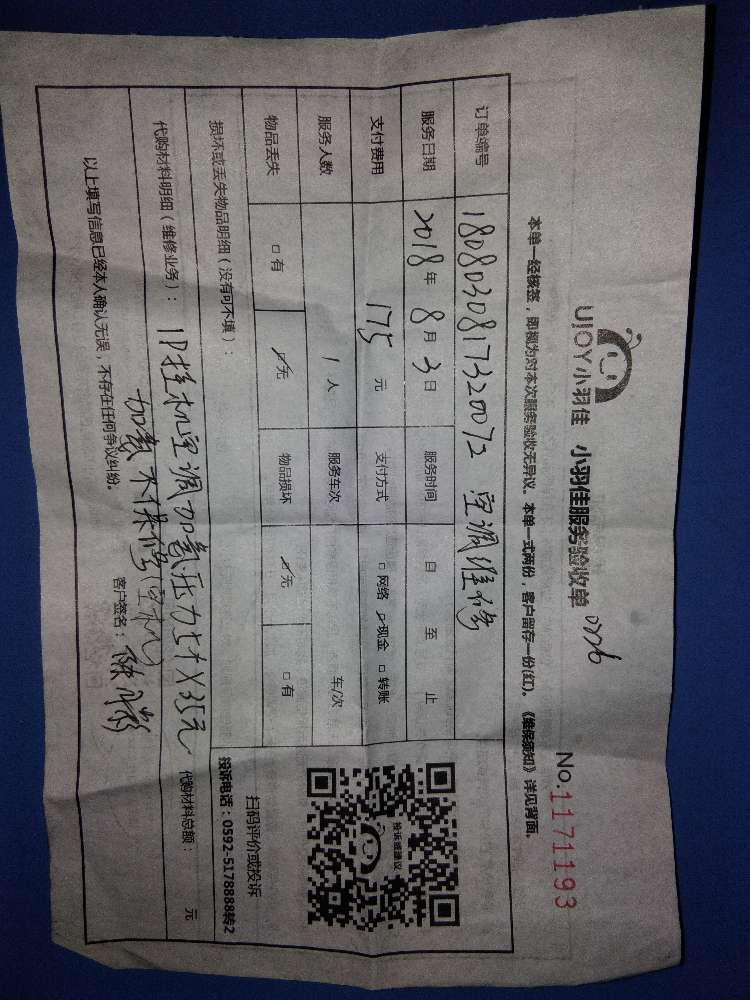 UJOY小羽佳 小羽佳服务验收单 0726
No.1171193
本单一经核签，即视为对本次服务验收无异议。本单一式两份，客户留存一份(红)。《维保须知》详见背面。
订单编号 1808030817320072 空调维修
服务日期 2018年8月3日 服务时间 自 至 止
支付费用 175元 支付方式 □网络 ☑现金 □转账
服务人数 1人 服务车次 车/次
物品丢失 □有 ☑无 物品损坏 ☑无 □有
损坏或丢失物品明细（没有可不填）：
代购材料明细（维修业务）：1P挂机空调加氟压力5个×35元 代购材料总额： 元
加氟不保修(空机)
以上填写信息已经本人确认无误，不存在任何争议纠纷。 客户签名：
投诉或建议
扫码评价或投诉
投诉电话：0592-5178888转2